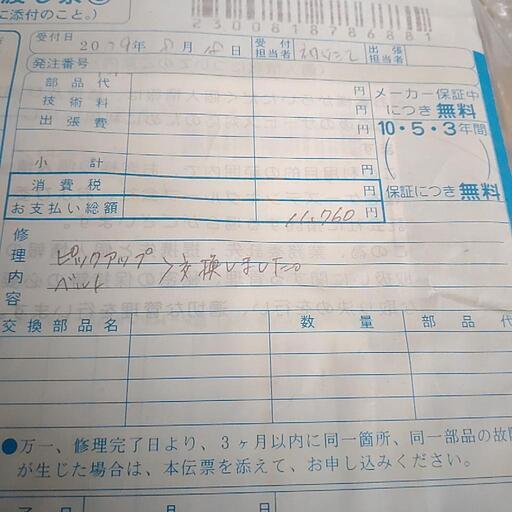 に添付のこと。)
2300818786881
受付日 2019年 8月18日 受付担当者 出張担当者
発注番号
部品代 円
技術料 円
出張費 円
小計 円
消費税 円
お支払い総額 11,760円
メーカー保証中
につき無料
10・5・3年間
( )
保証につき無料
修理内容
ピックアップ
ベルト >交換しました。
交換部品名 数量 部品代
●万一、修理完了日より、3ヶ月以内に同一箇所、同一部品の故
が生じた場合は、本伝票を添えて、お申し込みください。
了日 月 日